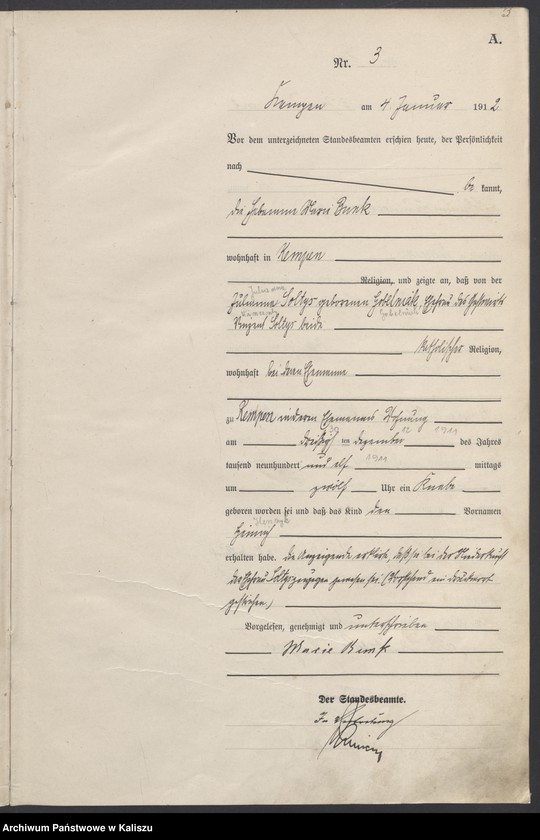 3
A.
Nr. 3
Kempen am 4 Januar 1912
Vor dem unterzeichneten Standesbeamten erschien heute, der Persönlichkeit
nach be kannt,
die Hebamme Marie Bunk
wohnhaft in Kempen
Religion, und zeigte an, daß von der
Julianna
Julianna Soltys geborenen Ehefrau des
Vinzent Soltys beide
katholischer Religion,
wohnhaft bei deren Ehemanne
zu Kempen in deren Ehemannes Wohnung
12 1911
am dreißigsten Dezember des Jahres
tausend neunhundert und elf 1911 mittags
um zwölf Uhr ein Knabe
geboren worden sei und daß das Kind den Vornamen
Henryk
Heinrich
erhalten habe. Die Anzeigende erklärte, daß sie bei der Niederkunft
der Ehefrau Soltys zugegen gewesen sei. (Vorstehend ein Druckwort
gestrichen.)
Vorgelesen, genehmigt und unterschrieben
Marie Bunk
Der Standesbeamte.
In Vertretung
Archiwum Państwowe w Kaliszu